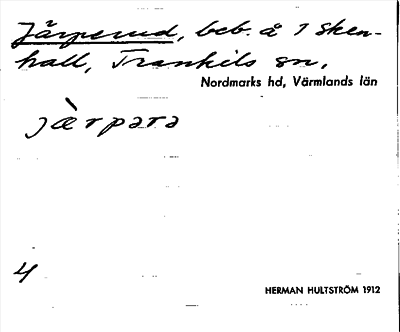 Järperud, beb. å 1 Sken-
hall, Trankils sn,
Nordmarks hd, Värmlands län
jὰrpara
4
HERMAN HULTSTRÖM 1912